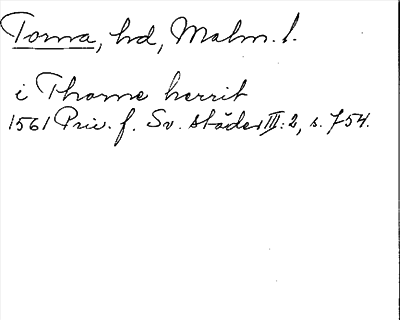 Torna, hd, Malm. l.
i Thorne herrit
1561 Priv. f. Sv. städer III:2, s. 754.